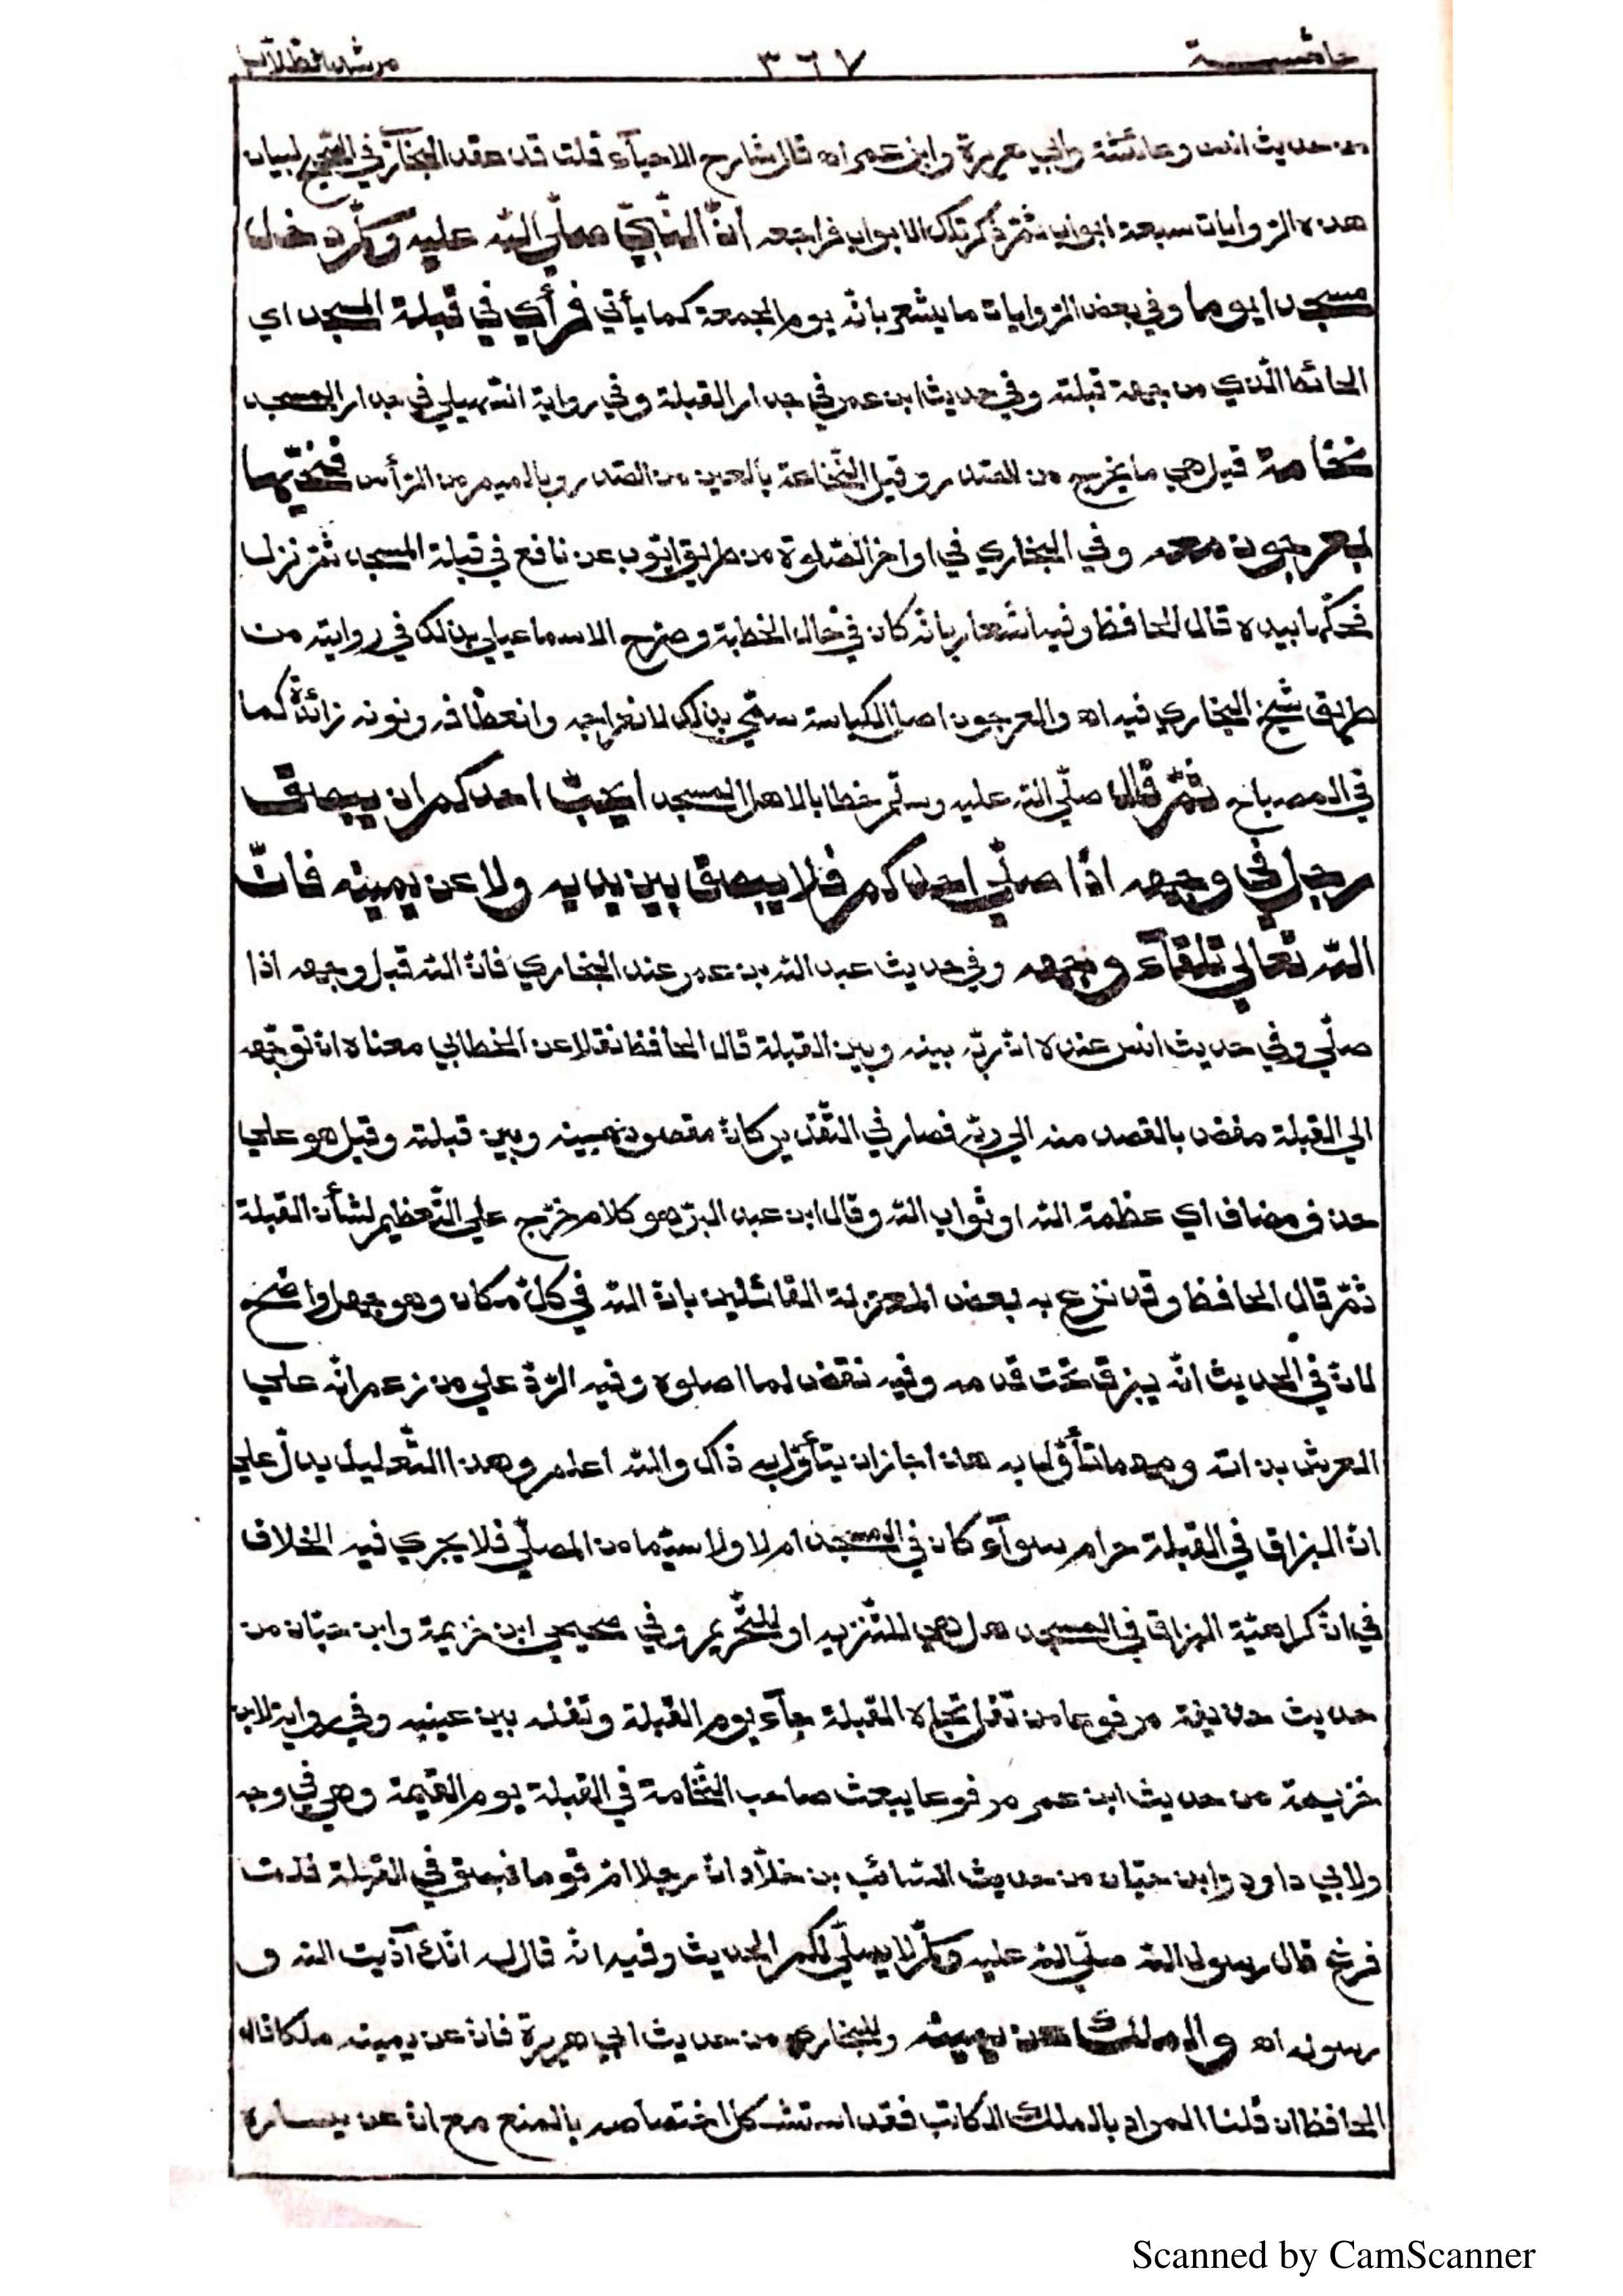 حاشيـــــة ٣٦٧ مرشد الطلاب
من حديث انس وعائشة وابي هريرة وابن عمر اه قال شارح الاحياء قلت قد عقد البخاري في الصحيح لبيان
هذه الروايات سبعة ابواب ثم ذكر تلك الابواب فراجعه أنّ النّبيّ صلّى الله عليه وسلّم دخل
مسجدا يوما وفي بعض الروايات ما يشعر بانّه يوم الجمعة كما يأتي فرأي في قبلة المسجد اي
الحائط الّذي من جهة قبلته وفي حديث ابن عمر في جدار القبلة وفي رواية في جدار المسجد
نخامة قيل هي ما يخرج من الصدر وقيل النّخاعة بالعين من الصدر وبالميم من الرّأس فحتّها
بعرجون معه وفي البخاري في اواخر الصّلوة من طريق ايّوب عن نافع في قبلة المسجد ثمّ نزل
فحكّها بيده قال الحافظ وفيه اشعار بانّه كان في حال الخطبة وصرّح الاسماعيلي بذلك في روايته من
طريق شيخ البخاري فيه اه والعرجون اصل الكباسة سمّي بذلك لانعراجه وانعطافه ونونه زائدة كما
في المصباح ثمّ قال صلّى الله عليه وسلّم خطابا لاهل المسجد أيحبّ احدكم ان يبصق
رجل في وجهه اذا صلّي احدكم فلا يبصق بين يديه ولا عن يمينه فانّ
الله تعالي تلقاء وجهه وفي حديث عبد الله بن عمر عند البخاري فانّ الله قبل وجهه اذا
صلّي وفي حديث انس عنده انّ ربّه بينه وبين القبلة قال الحافظ نقلا عن الخطابي معناه انّ توجّهه
الي القبلة مفض بالقصد منه الي ربّه فصار في التّقدير كانّ مقصوده بينه وبين قبلته وقيل هو علي
حذف مضاف اي عظمة الله او ثواب الله وقال ابن عبد البرّ هو كلام خرّج علي التّعظيم لشأن القبلة
ثمّ قال الحافظ وقد نزع به بعض المعتزلة القائلين بانّ الله في كلّ مكان وهو جهل واضح
لانّ في الحديث انّه يبزق تحت قدمه وفيه نقض لما اصلوه وفيه الرّدّ علي من زعم انّه علي
العرش بذاته ومهما تأوّل به هذا جاز ان يتأوّل به ذاك والله اعلم وهذا التّعليل يدلّ علي
انّ البزاق في القبلة حرام سوآء كان في المسجد ام لا ولا سيّما من المصلّي فلا يجري فيه الخلاف
في انّ كراهيّة البزاق في المسجد هل هي للتّنزيه او للتّحريم وفي صحيحي ابن خزيمة وابن حبّان من
حديث حذيفة مرفوعا من تفل تجاه القبلة جآء يوم القيمة وتفله بين عينيه وفي رواية لابن
خزيمة من حديث ابن عمر مرفوعا يبعث صاحب النّخامة في القبلة يوم القيمة وهي في وجهه
ولابي داود وابن حبّان من حديث السّائب بن خلاّد انّ رجلا امّ قوما فبصق في القبلة فلمّا
فرغ قال رسول الله صلّي الله عليه وسلّم لا يصلّي لكم الحديث وفيه انّه قال له انّك آذيت الله و
رسوله اه والملك عن يمينه وللبخاري من حديث ابي هريرة فانّ عن يمينه ملكا قال
الحافظ ان قلنا المراد بالملك الكاتب فقد استشكل اختصاصه بالمنع مع انّ عن يساره
Scanned by CamScanner